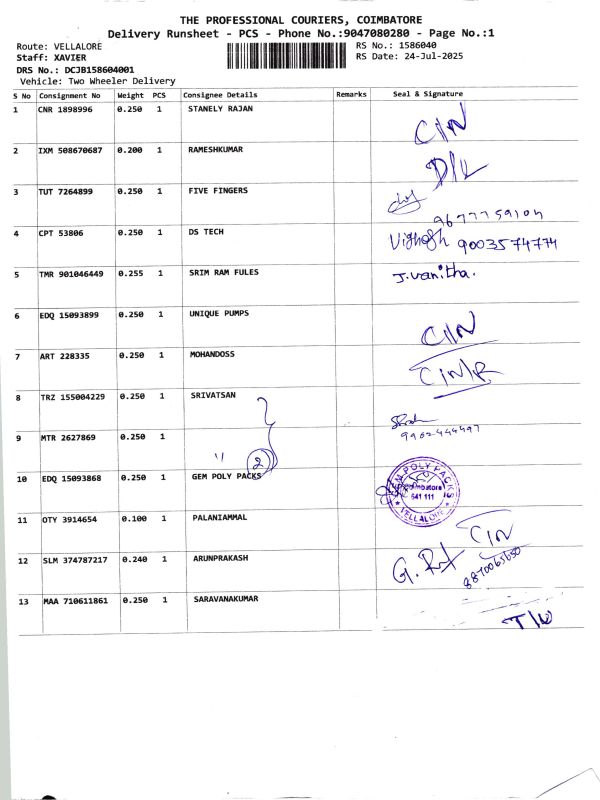 THE PROFESSIONAL COURIERS, COIMBATORE
Delivery Runsheet - PCS - Phone No.:9047080280 - Page No.:1
Route: VELLALORE RS No.: 1586040
Staff: XAVIER RS Date: 24-Jul-2025
DRS No.: DCJB158604001
Vehicle: Two Wheeler Delivery
S No Consignment No Weight PCS Consignee Details Remarks Seal & Signature
1 CNR 1898996 0.250 1 STANELY RAJAN CIN
2 IXM 508670687 0.200 1 RAMESHKUMAR D/L
3 TUT 7264899 0.250 1 FIVE FINGERS
4 CPT 53806 0.250 1 DS TECH Vighesh 9003574774
5 TMR 901046449 0.255 1 SRIM RAM FULES J.vanitha.
6 EDQ 15093899 0.250 1 UNIQUE PUMPS CIN
7 ART 228335 0.250 1 MOHANDOSS
8 TRZ 155004229 0.250 1 SRIVATSAN
9 MTR 2627869 0.250 1 " 2
10 EDQ 15093868 0.250 1 GEM POLY PACKS GEM POLY PACKS Coimbatore 641 111 VELLALORE
11 OTY 3914654 0.100 1 PALANIAMMAL CIN
12 SLM 374787217 0.240 1 ARUNPRAKASH
13 MAA 710611861 0.250 1 SARAVANAKUMAR